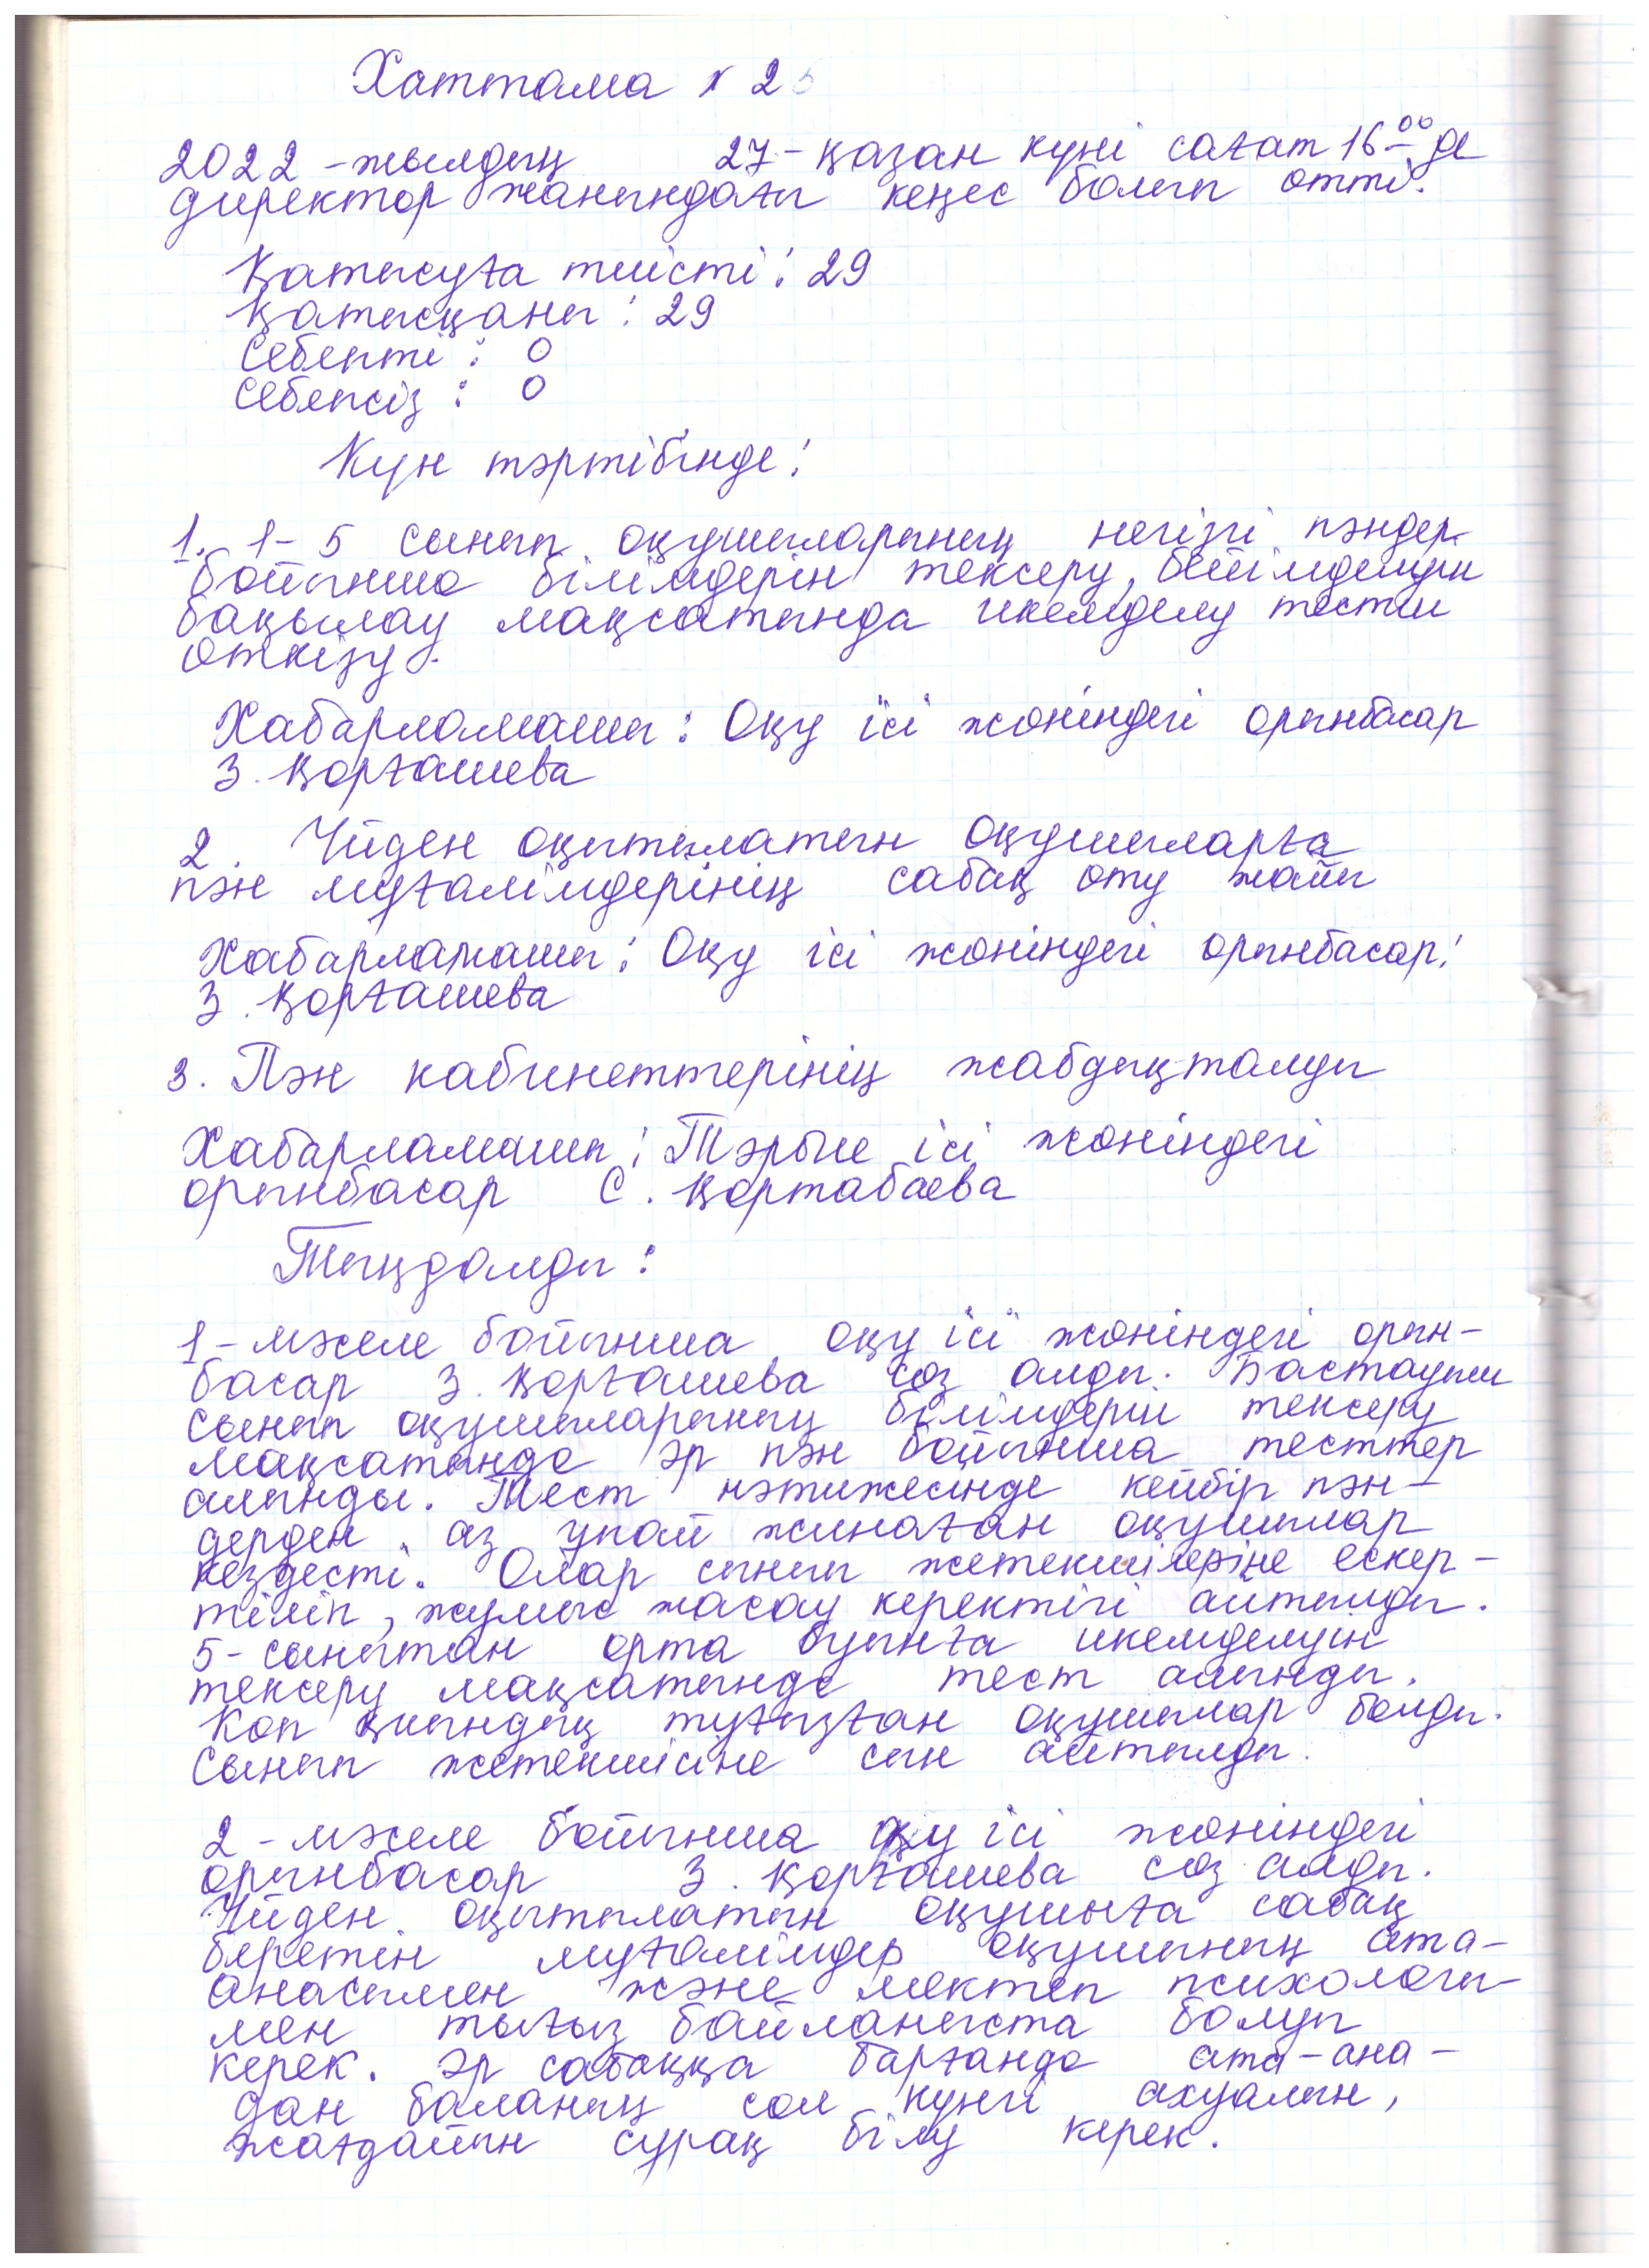 Хаттама № 2
2022 -жылдың 27-қазан күні сағат 16⁰⁰ де
директор жанындағы кеңес болып өтті.
Қатысуға тиісті: 29
Қатысқаны: 29
Себепті: 0
Себепсіз: 0
Күн тәртібінде:
1. 1-5 сынып оқушыларының негізгі пәндер
бойынша білімдерін тексеру, бейімделуін
бақылау мақсатында икемделу тестін
өткізу.
Хабарламашы: Оқу ісі жөніндегі орынбасар
З. Қорғашева
2. Үйден оқытылатын оқушыларға
пән мұғалімдерінің сабақ өту жайы
Хабарламашы: Оқу ісі жөніндегі орынбасар:
З. Қорғашева
3. Пән кабинеттерінің жабдықталуы
Хабарламашы: Тәрбие ісі жөніндегі
орынбасар С. Қортабаева
Тыңдалды:
1-мәселе бойынша оқу ісі жөніндегі орын-
басар З. Қорғашева сөз алды. Бастауыш
сынып оқушыларының білімдерін тексеру
мақсатында әр пән бойынша тесттер
алынды. Тест нәтижесінде кейбір пән-
дерден аз ұпай жинаған оқушылар
кездесті. Олар сынып жетекшілеріне ескер-
тіліп, жұмыс жасау керектігі айтылды.
5-сыныптан орта буынға икемделуін
тексеру мақсатында тест алынды.
Көп қиындық туғызған оқушылар болды.
Сынып жетекшісіне сын айтылды.
2-мәселе бойынша оқу ісі жөніндегі
орынбасар З. Қорғашева сөз алды.
Үйден оқытылатын оқушыға сабақ
беретін мұғалімдер оқушының ата-
анасымен және мектеп психологы-
мен тығыз байланыста болуы
керек. Әр сабаққа барғанда ата-ана-
дан баланың сол күнгі ахуалын,
жағдайын сұрақ білу керек.